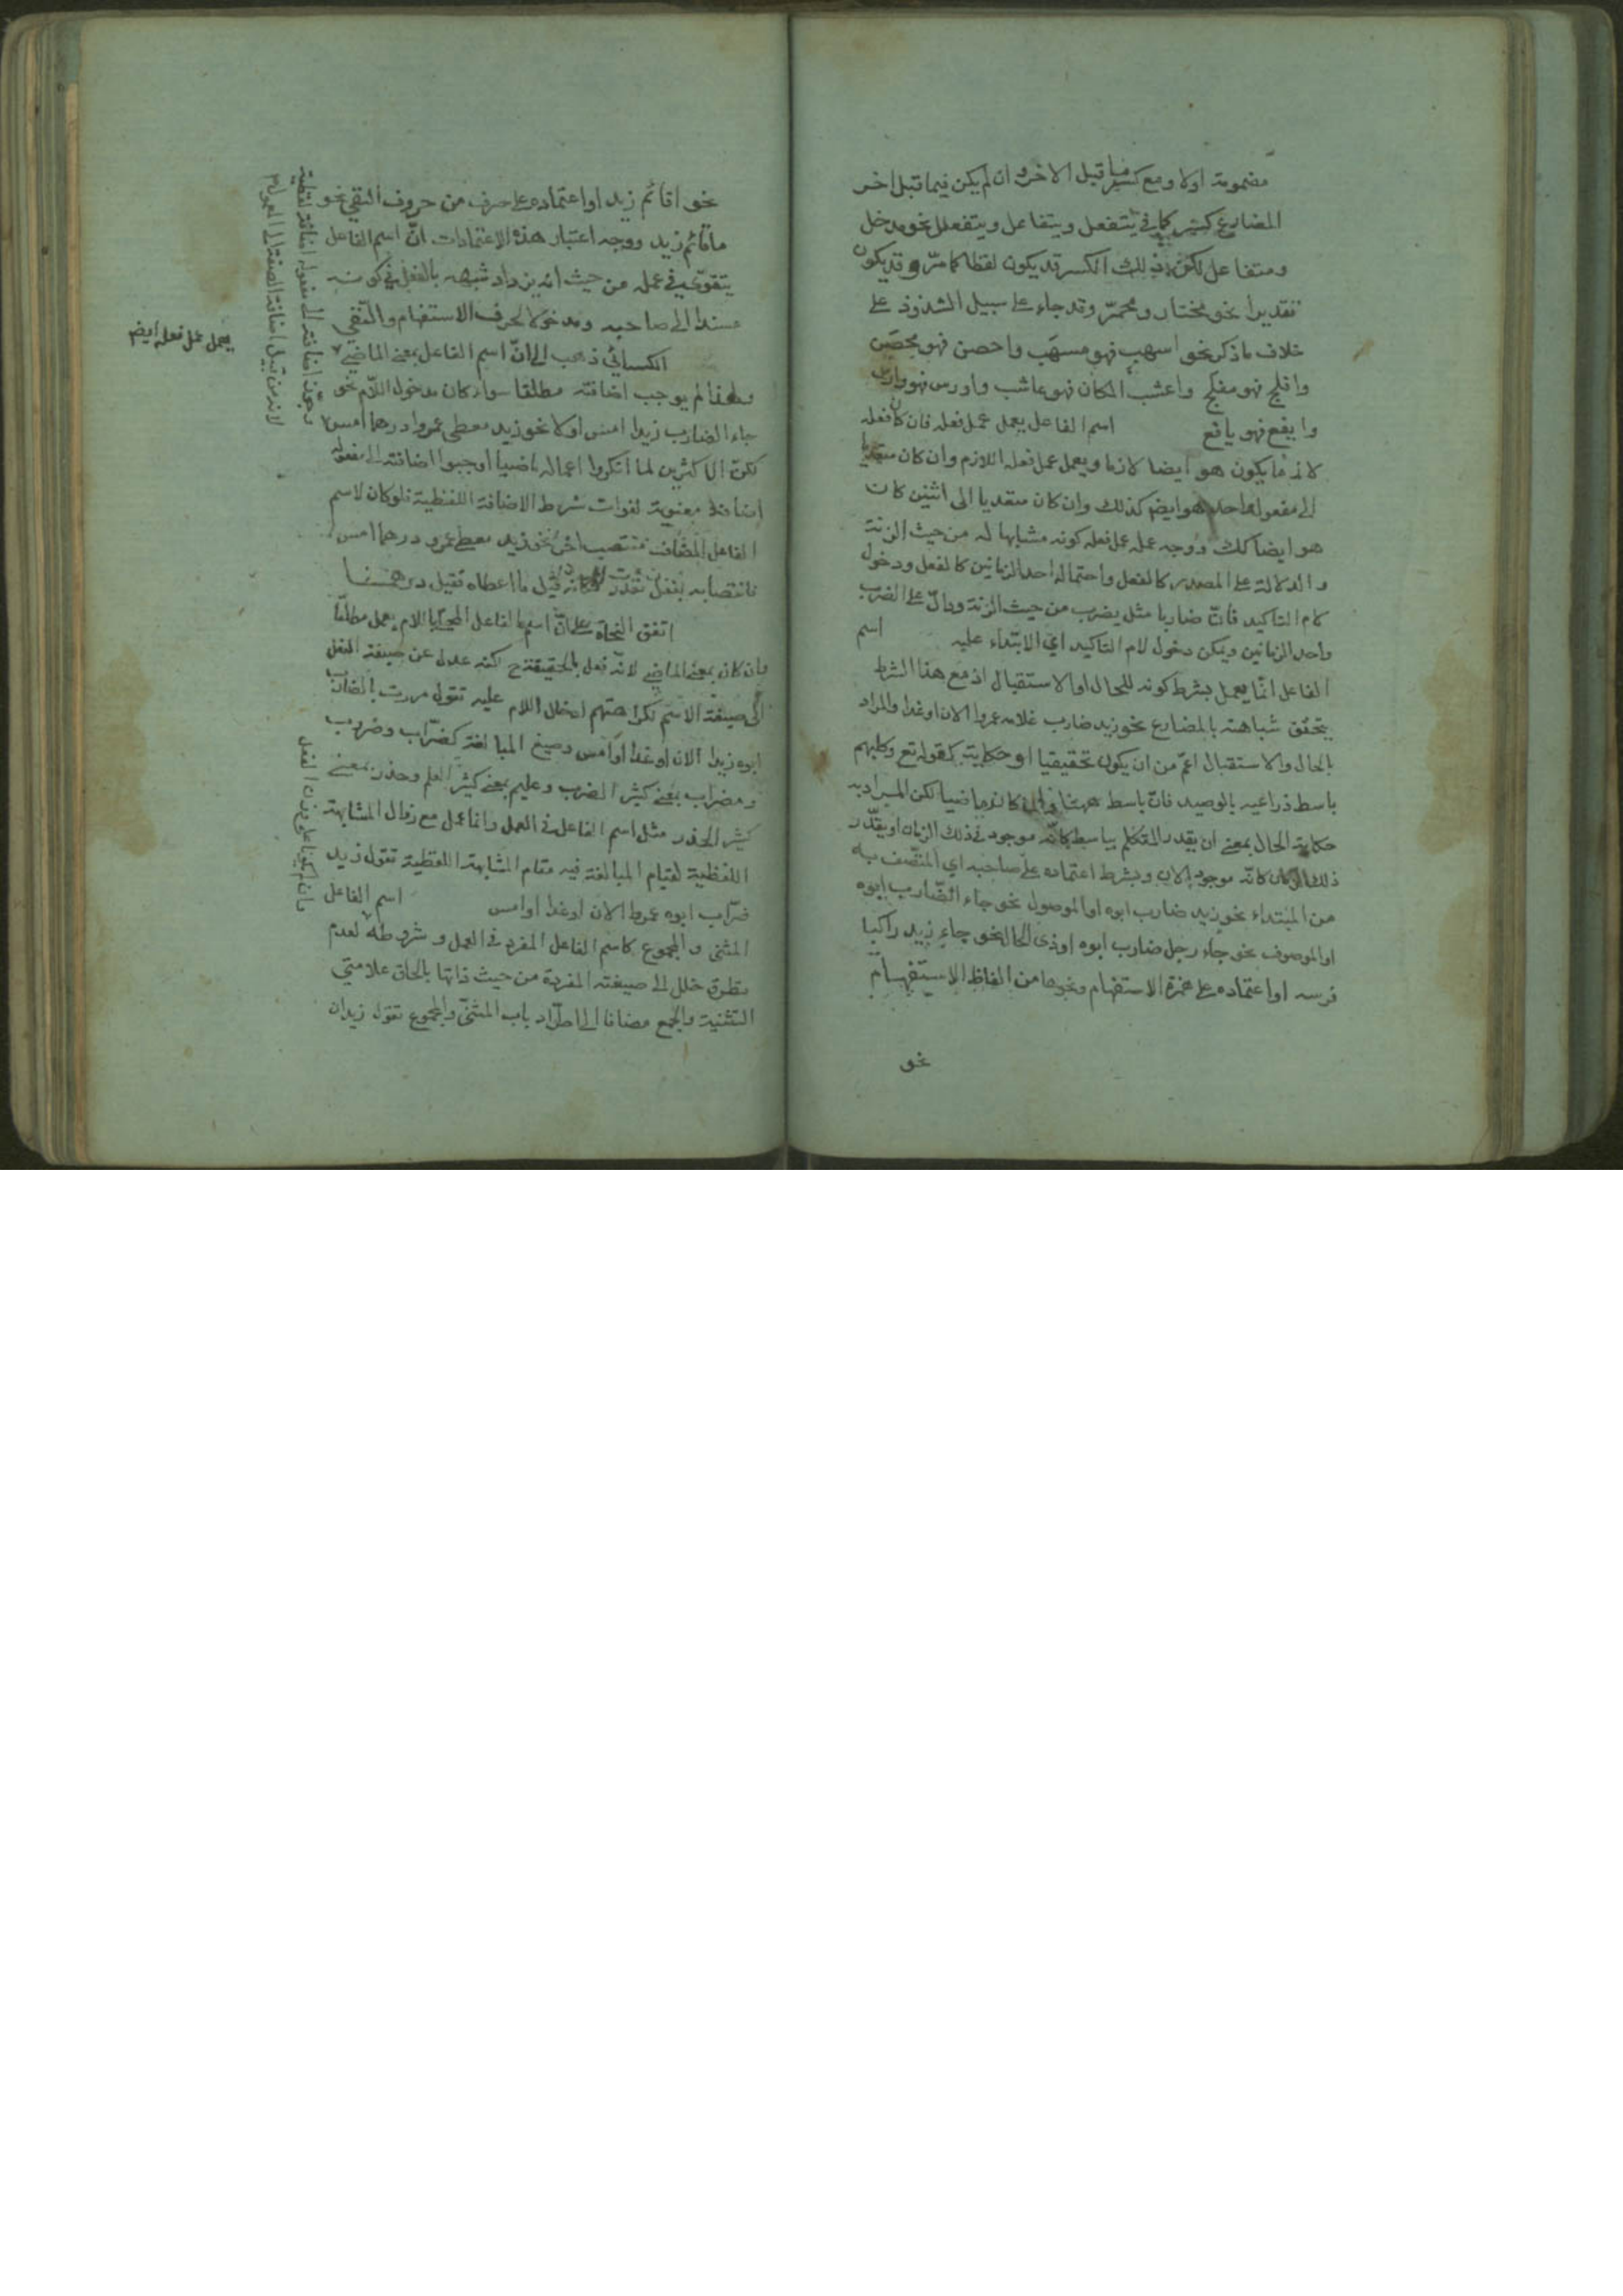 مضمومة اولا ومع كسر ما قبل الاخر وان لم يكن فيما قبل اخر
المضارع كسر كما في يتفعل ويتفاعل ويتفعلل نحو مدخل
ومتفاعل لكن ذلك الكسر قد يكون لفظا كما مرّ وقد يكون
تقديرا نحو مختار ومحمرّ وقد جاء على سبيل الشذوذ على
خلاف ما ذكر نحو اسهب فهو مسهَب واحصن فهو محصَن
وافلج فهو مفلَج واعشب المكان فهو عاشب واورس فهو وارس
وايفع فهو يافع اسم الفاعل يعمل عمل فعله فان كان فعله
لازما يكون هو ايضا لازما ويعمل عمل فعله اللازم وان كان متعديا
الى مفعول واحد هو ايضا كذلك وان كان متعديا الى اثنين كان
هو ايضا كك ووجه عمله عمل فعله كونه مشابها له من حيث الزنة
والدلالة على المصدر كالفعل واحتماله احد الزمانين كالفعل ودخول
لام التاكيد فانّ ضاربا مثل يضرب من حيث الزنة ودالّ على الضرب
واحد الزمانين ويمكن دخول لام التاكيد اي الابتداء عليه اسم
الفاعل انّما يعمل بشرط كونه للحال او الاستقبال اذ مع هذا الشرط
يتحقق شباهته بالمضارع نحو زيد ضارب غلامه عمروا الان او غدا والمراد
بالحال والاستقبال اعمّ من ان يكون تحقيقيا او حكاية كقوله تع وكلبهم
باسط ذراعيه بالوصيد فانّ باسط ههنا وان كان ماضيا لكن المراد به
حكاية الحال بمعنى ان يقدر المتكلم بباسط كانّه موجود في ذلك الزمان او يقدّر
ذلك الزمان كانّه موجود الان وبشرط اعتماده على صاحبه اي المتّصف به
من المبتداء نحو زيد ضارب ابوه او الموصول نحو جاء الضّارب ابوه
او الموصوف نحو جاء رجل ضارب ابوه او ذى الحال نحو جاء زيد راكبا
فرسه او اعتماده على همزة الاستفهام ونحوها من الفاظ الاستفهام
نحو
نحو اقائم زيد او اعتماده على حرف من حروف النفي نحو
ما قائم زيد ووجه اعتبار هذه الاعتمادات انّ اسم الفاعل
يتقوّى في عمله من حيث انه يزداد شبهه بالفعل في كونه
مسندا الى صاحبه ومدخولا لحرف الاستفهام والنّفي
الكسائي ذهب الى انّ اسم الفاعل بمعنى الماضي
يعمل عمل فعله ايضا
ولهذا لم يوجب اضافته مطلقا سواء كان مدخول اللّام نحو
جاء الضارب زيدا امس اولا نحو زيد معطى عمروا درهما امس
لكن الاكثرين لما انكروا اعماله ماضيا اوجبوا اضافته الى مفعوله
اضافة معنوية لفوات شرط الاضافة اللفظية فلو كان لاسم
الفاعل المضاف منتصب اخر نحو زيد معطى عمرو درهما امس
فانتصابه بفعل مقدر كانه قيل ما اعطاه فقيل درهما
اتفق النحاة على انّ اسم الفاعل المحلّى باللام يعمل مطلقا
وان كان بمعنى الماضي لانّه فعل بالحقيقة ح لكنه عدل عن صيغة الفعل
الى صيغة الاسم لكراهتهم ادخال اللام عليه تقول مررت بالضارب
ابوه زيدا الان او غدا او امس وصيغ المبالغة كضرّاب وضروب
ومضراب بمعنى كثير الضرب وعليم بمعنى كثير العلم وحذر بمعنى
كثير الحذر مثل اسم الفاعل في العمل وانما عمل مع زوال المشابهة
اللفظية لقيام المبالغة فيه مقام المشابهة اللفظية تقول زيد
ضرّاب ابوه عمروا الان او غدا او امس اسم الفاعل
المثنى والمجموع كاسم الفاعل المفرد في العمل وشروطه لعدم
تطرق خلل الى صيغته المفردة من حيث ذاتها بالحاق علامتي
التثنية والجمع مضافا الى اطّراد باب المثنّى والمجموع تقول زيدان
وجوّز اضافته الى مفعوله اضافة لفظية
لانه من قبيل اضافة الصفة الى المعمول
وان لم يكونا على وزن الفعل